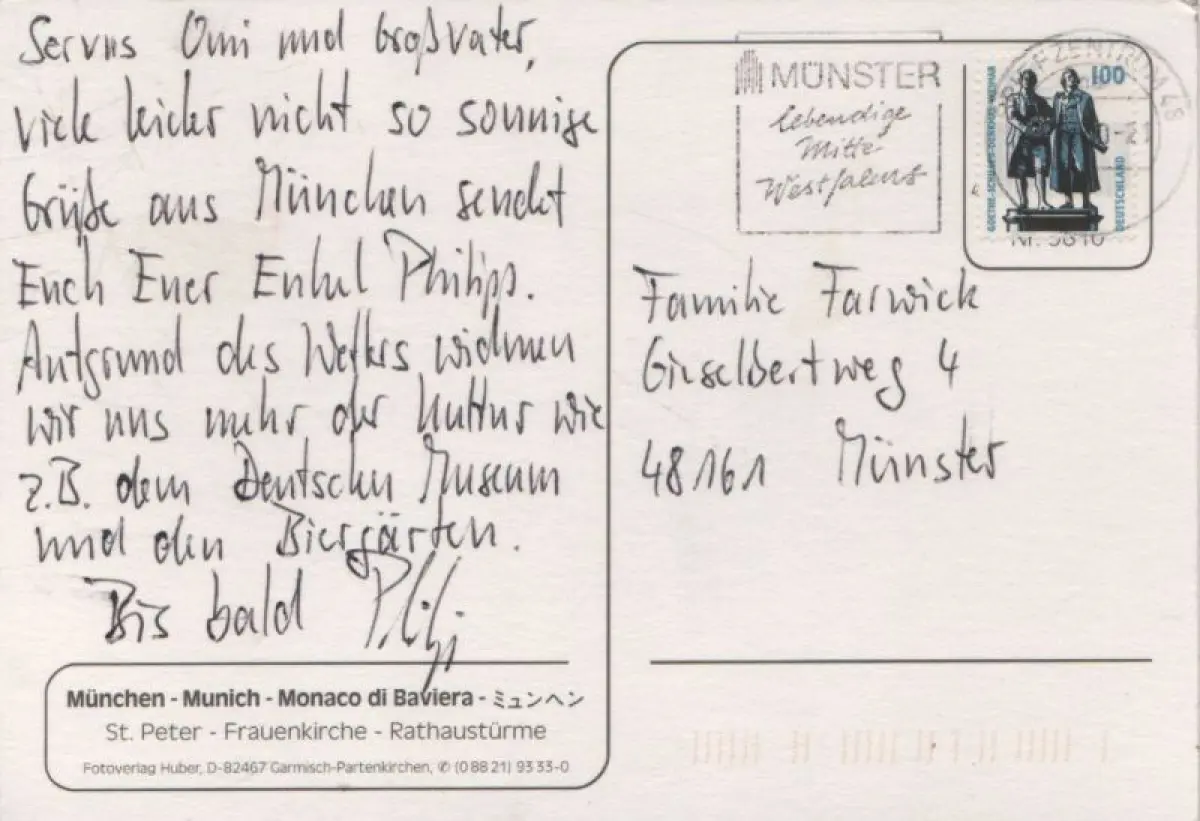 Servus Omi und Großvater,
viele leider nicht so sonnige
Grüße aus München sendet
Euch Euer Enkel Philipp.
Aufgrund des Wetters widmen
wir uns mehr der Kultur wie
z.B. dem Deutschen Museum
und den Biergärten.
Bis bald Philipp
München - Munich - Monaco di Baviera - ミュンヘン
St. Peter - Frauenkirche - Rathaustürme
Fotoverlag Huber, D-82467 Garmisch-Partenkirchen, ✆ (0 88 21) 93 33-0
MÜNSTER
lebendige
Mitte
Westfalens
BRIEFZENTRUM 48
100
GOETHE-SCHILLER-DENKMAL WEIMAR
DEUTSCHLAND
Nr. 5810
Familie Farwick
Giselbertweg 4
48161 Münster